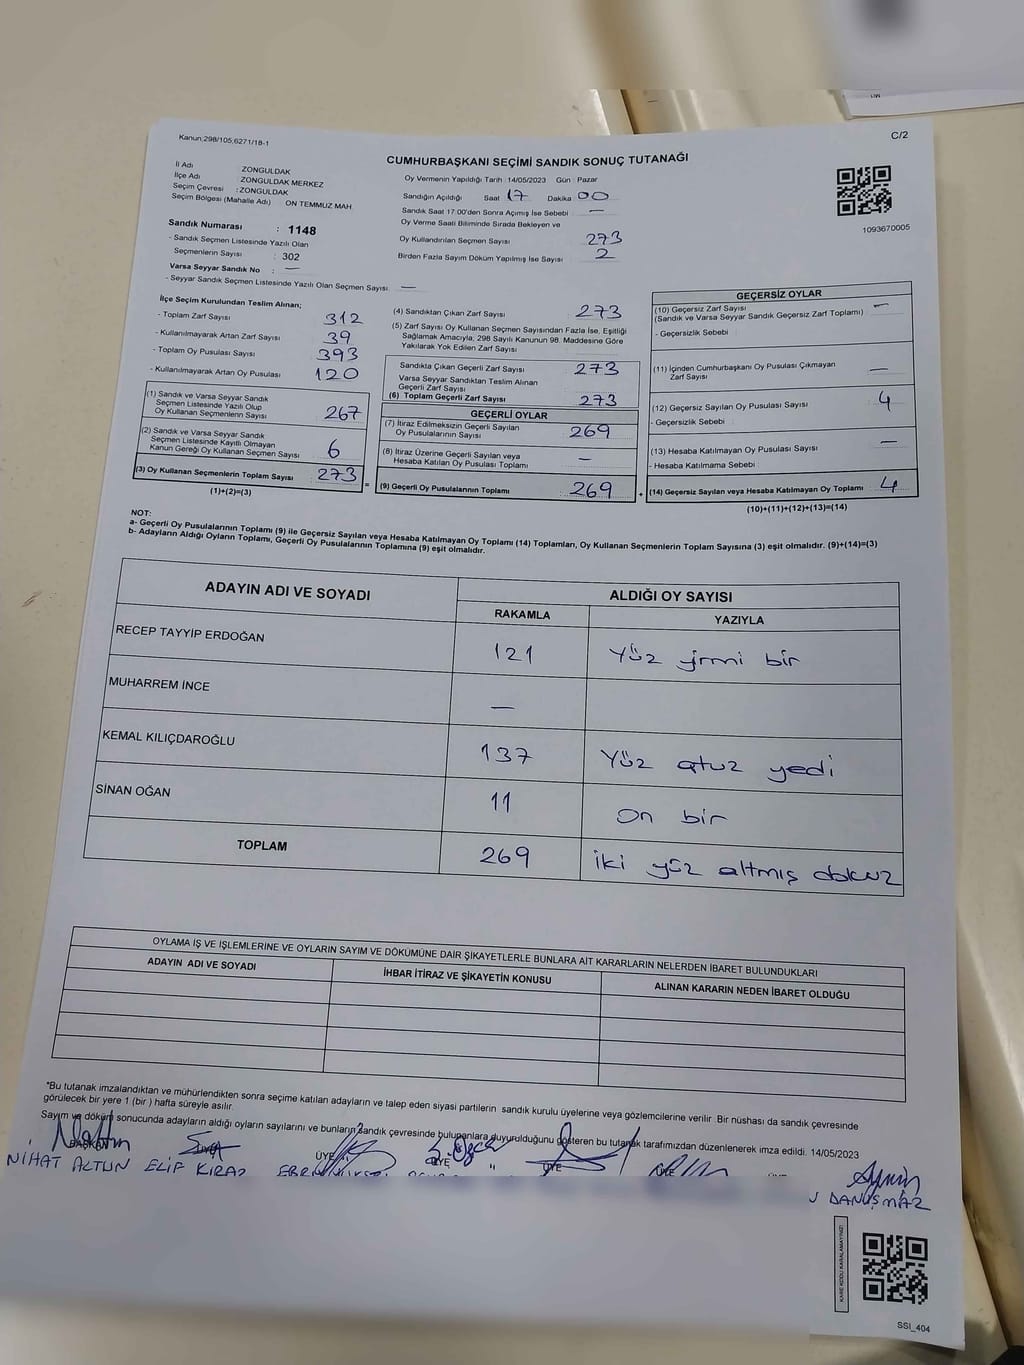 Kanun:298/105,6271/18-1
C/2
CUMHURBAŞKANI SEÇİMİ SANDIK SONUÇ TUTANAĞI
İl Adı ZONGULDAK
İlçe Adı ZONGULDAK MERKEZ
Seçim Çevresi :ZONGULDAK
Seçim Bölgesi (Mahalle Adı) ON TEMMUZ MAH.
Oy Vermenin Yapıldığı Tarih :14/05/2023 Gün : Pazar
Sandığın Açıldığı Saat 17 Dakika 00
Sandık Saat 17:00'den Sonra Açımış İse Sebebi —
Oy Verme Saati Bitiminde Sırada Bekleyen ve
Oy Kullandırılan Seçmen Sayısı 273
Birden Fazla Sayım Döküm Yapılmış İse Sayısı 2
1093670005
Sandık Numarası : 1148
- Sandık Seçmen Listesinde Yazılı Olan
Seçmenlerin Sayısı : 302
Varsa Seyyar Sandık No : —
- Seyyar Sandık Seçmen Listesinde Yazılı Olan Seçmen Sayısı —
İlçe Seçim Kurulundan Teslim Alınan;
- Toplam Zarf Sayısı 312
- Kullanılmayarak Artan Zarf Sayısı 39
- Toplam Oy Pusulası Sayısı 393
- Kullanılmayarak Artan Oy Pusulası 120
(1) Sandık ve Varsa Seyyar Sandık
Seçmen Listesinde Yazılı Olup
Oy Kullanan Seçmenlerin Sayısı 267
(2) Sandık ve Varsa Seyyar Sandık
Seçmen Listesinde Kayıtlı Olmayan
Kanun Gereği Oy Kullanan Seçmen Sayısı 6
(3) Oy Kullanan Seçmenlerin Toplam Sayısı 273
(1)+(2)=(3)
(4) Sandıktan Çıkan Zarf Sayısı 273
(5) Zarf Sayısı Oy Kullanan Seçmen Sayısından Fazla İse, Eşitliği
Sağlamak Amacıyla; 298 Sayılı Kanunun 98. Maddesine Göre
Yakılarak Yok Edilen Zarf Sayısı
Sandıkta Çıkan Geçerli Zarf Sayısı 273
Varsa Seyyar Sandıktan Teslim Alınan
Geçerli Zarf Sayısı
(6) Toplam Geçerli Zarf Sayısı 273
GEÇERLİ OYLAR
(7) İtiraz Edilmeksizin Geçerli Sayılan
Oy Pusulalarının Sayısı 269
(8) İtiraz Üzerine Geçerli Sayılan veya
Hesaba Katılan Oy Pusulası Toplamı —
=
(9) Geçerli Oy Pusulalarının Toplamı 269
GEÇERSİZ OYLAR
(10) Geçersiz Zarf Sayısı —
(Sandık ve Varsa Seyyar Sandık Geçersiz Zarf Toplamı)
- Geçersizlik Sebebi :
(11) İçinden Cumhurbaşkanı Oy Pusulası Çıkmayan
Zarf Sayısı —
(12) Geçersiz Sayılan Oy Pusulası Sayısı 4
- Geçersizlik Sebebi :
(13) Hesaba Katılmayan Oy Pusulası Sayısı —
- Hesaba Katılmama Sebebi :
+ (14) Geçersiz Sayılan veya Hesaba Katılmayan Oy Toplamı 4
(10)+(11)+(12)+(13)=(14)
NOT:
a- Geçerli Oy Pusulalarının Toplamı (9) ile Geçersiz Sayılan veya Hesaba Katılmayan Oy Toplamı (14) Toplamları, Oy Kullanan Seçmenlerin Toplam Sayısına (3) eşit olmalıdır. (9)+(14)=(3)
b- Adayların Aldığı Oyların Toplamı, Geçerli Oy Pusulalarının Toplamına (9) eşit olmalıdır.
ADAYIN ADI VE SOYADI ALDIĞI OY SAYISI
RAKAMLA YAZIYLA
RECEP TAYYİP ERDOĞAN 121 Yüz yirmi bir
MUHARREM İNCE —
KEMAL KILIÇDAROĞLU 137 Yüz otuz yedi
SİNAN OĞAN 11 on bir
TOPLAM 269 iki yüz altmış dokuz
OYLAMA İŞ VE İŞLEMLERİNE VE OYLARIN SAYIM VE DÖKÜMÜNE DAİR ŞİKAYETLERLE BUNLARA AİT KARARLARIN NELERDEN İBARET BULUNDUKLARI
ADAYIN ADI VE SOYADI İHBAR İTİRAZ VE ŞİKAYETİN KONUSU ALINAN KARARIN NEDEN İBARET OLDUĞU
*Bu tutanak imzalandıktan ve mühürlendikten sonra seçime katılan adayların ve talep eden siyasi partilerin sandık kurulu üyelerine veya gözlemcilerine verilir. Bir nüshası da sandık çevresinde
görülecek bir yere 1 (bir ) hafta süreyle asılır.
Sayım ve döküm sonucunda adayların aldığı oyların sayılarını ve bunların sandık çevresinde bulunanlara duyurulduğunu gösteren bu tutanak tarafımızdan düzenlenerek imza edildi. 14/05/2023
BAŞKAN ÜYE ÜYE ÜYE ÜYE ÜYE ÜYE
NİHAT ALTUN ELİF KİRAZ DANIŞMAZ
KARE KODU KARALAMAYINIZ!
SSI_404